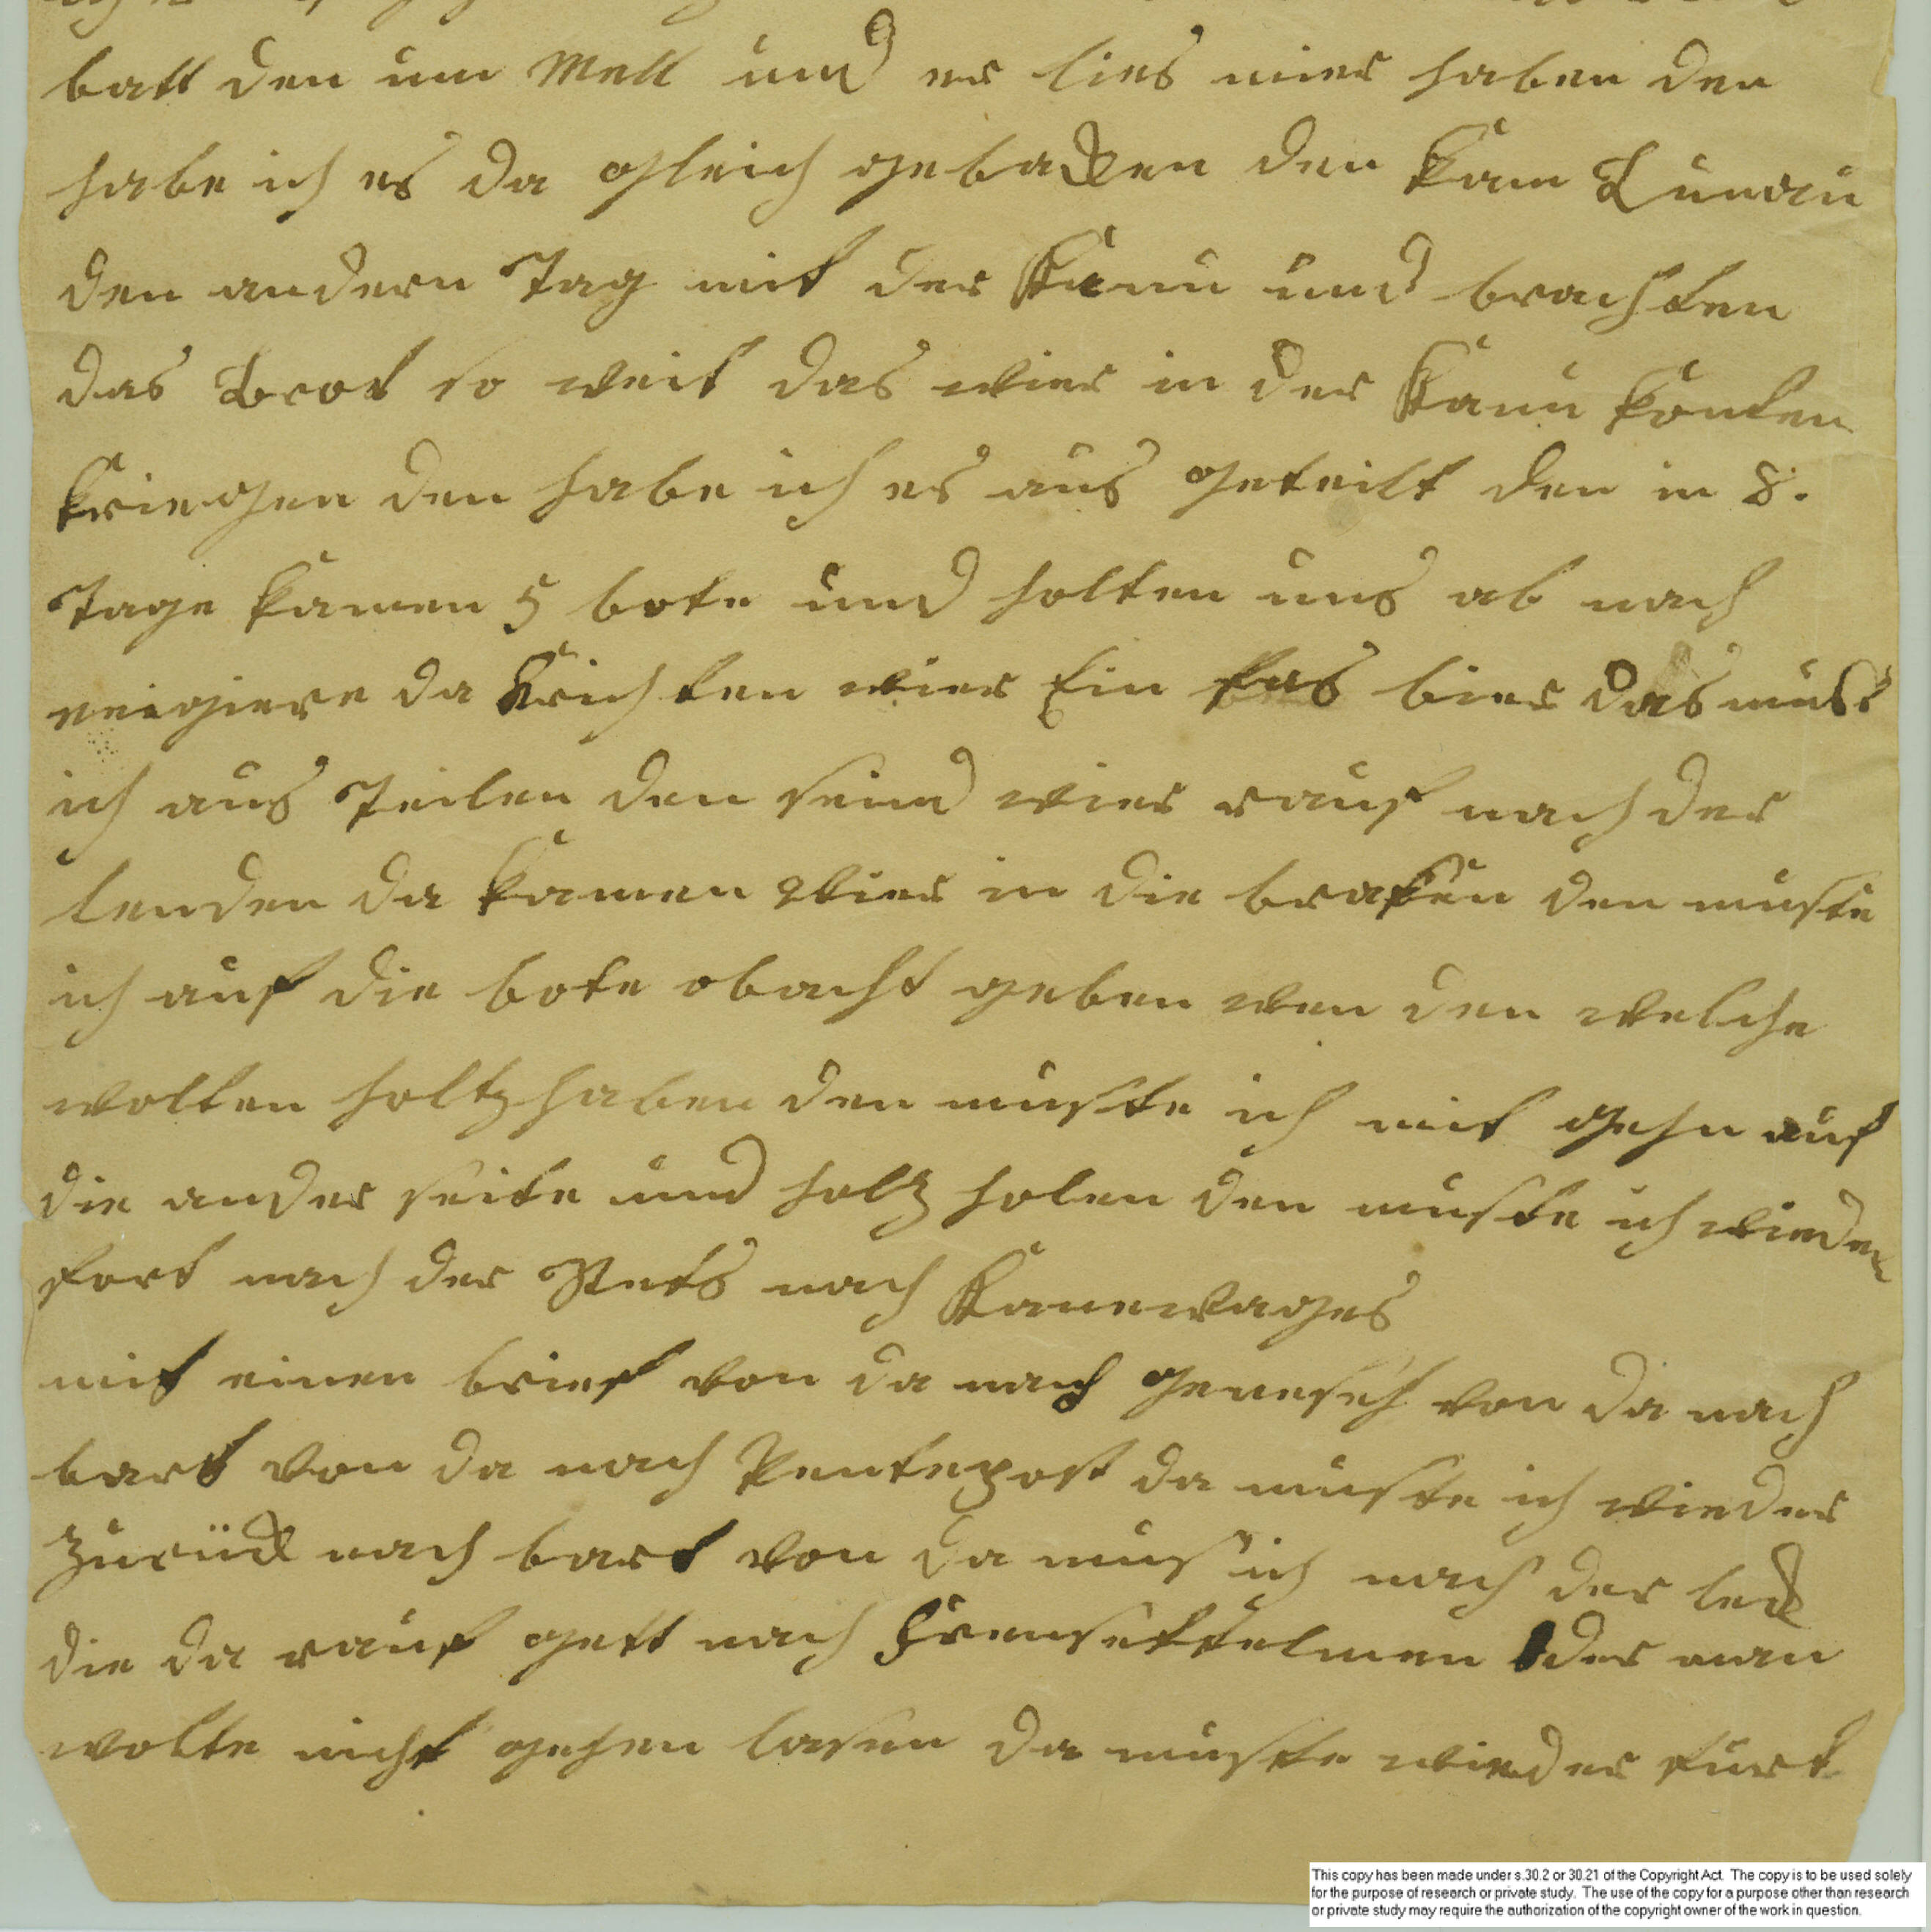 batt den um Mell und er lies mier haben den
habe ich es da gleich gebacken den kam
den andern Tag mit der Kanu und brachten
das Brot so weit das wier in der Kanu konten
kriegen den habe ich es aus geteilt den in 8.
Tage kamen 5 bote und holten uns ab nach
da krichten wier Ein fas bier das must
ich aus Teilen den seind wier rauf nach der
lenden da kamen wier in die den muste
ich auf die bote obacht geben wen den welche
wolten holtz haben den muste ich mit gehn auf
die ander seite und holtz holen den muste ich wieder
fort nach der nach
mit einen brief von da nach von da nach
bart von da nach da muste ich wieder
zurück nach bart von da mus ich nach der leck
die da rauf gett nach der man
wolte nicht gehen lasen da muste wieder furt
This copy has been made under s.30.2 or 30.21 of the Copyright Act. The copy is to be used solely
for the purpose of research or private study. The use of the copy for a purpose other than research
or private study may require the authorization of the copyright owner of the work in question.